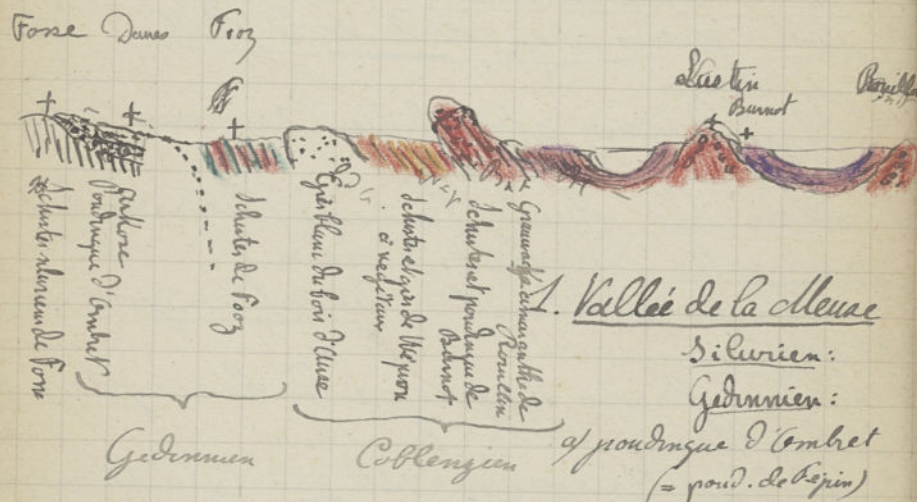 Fosse Daves Fooz
Lustin
Burnot
Rouillon
Schistes silurien de Fosse
Arkose
Poudingue d'Ombret
Schistes de Fooz
Grès blanc du bois d'Ause
Schistes et grès de Wépion
à végétaux
Schistes et poudingue de
Burnot
Grauwacke amaranthe de
Rouillon
Gedinnien
Coblenzien
1. Vallée de la Meuse
Silurien:
Gedinnien:
a/ poudingue d'Ombret
(= poud. de Fépin)